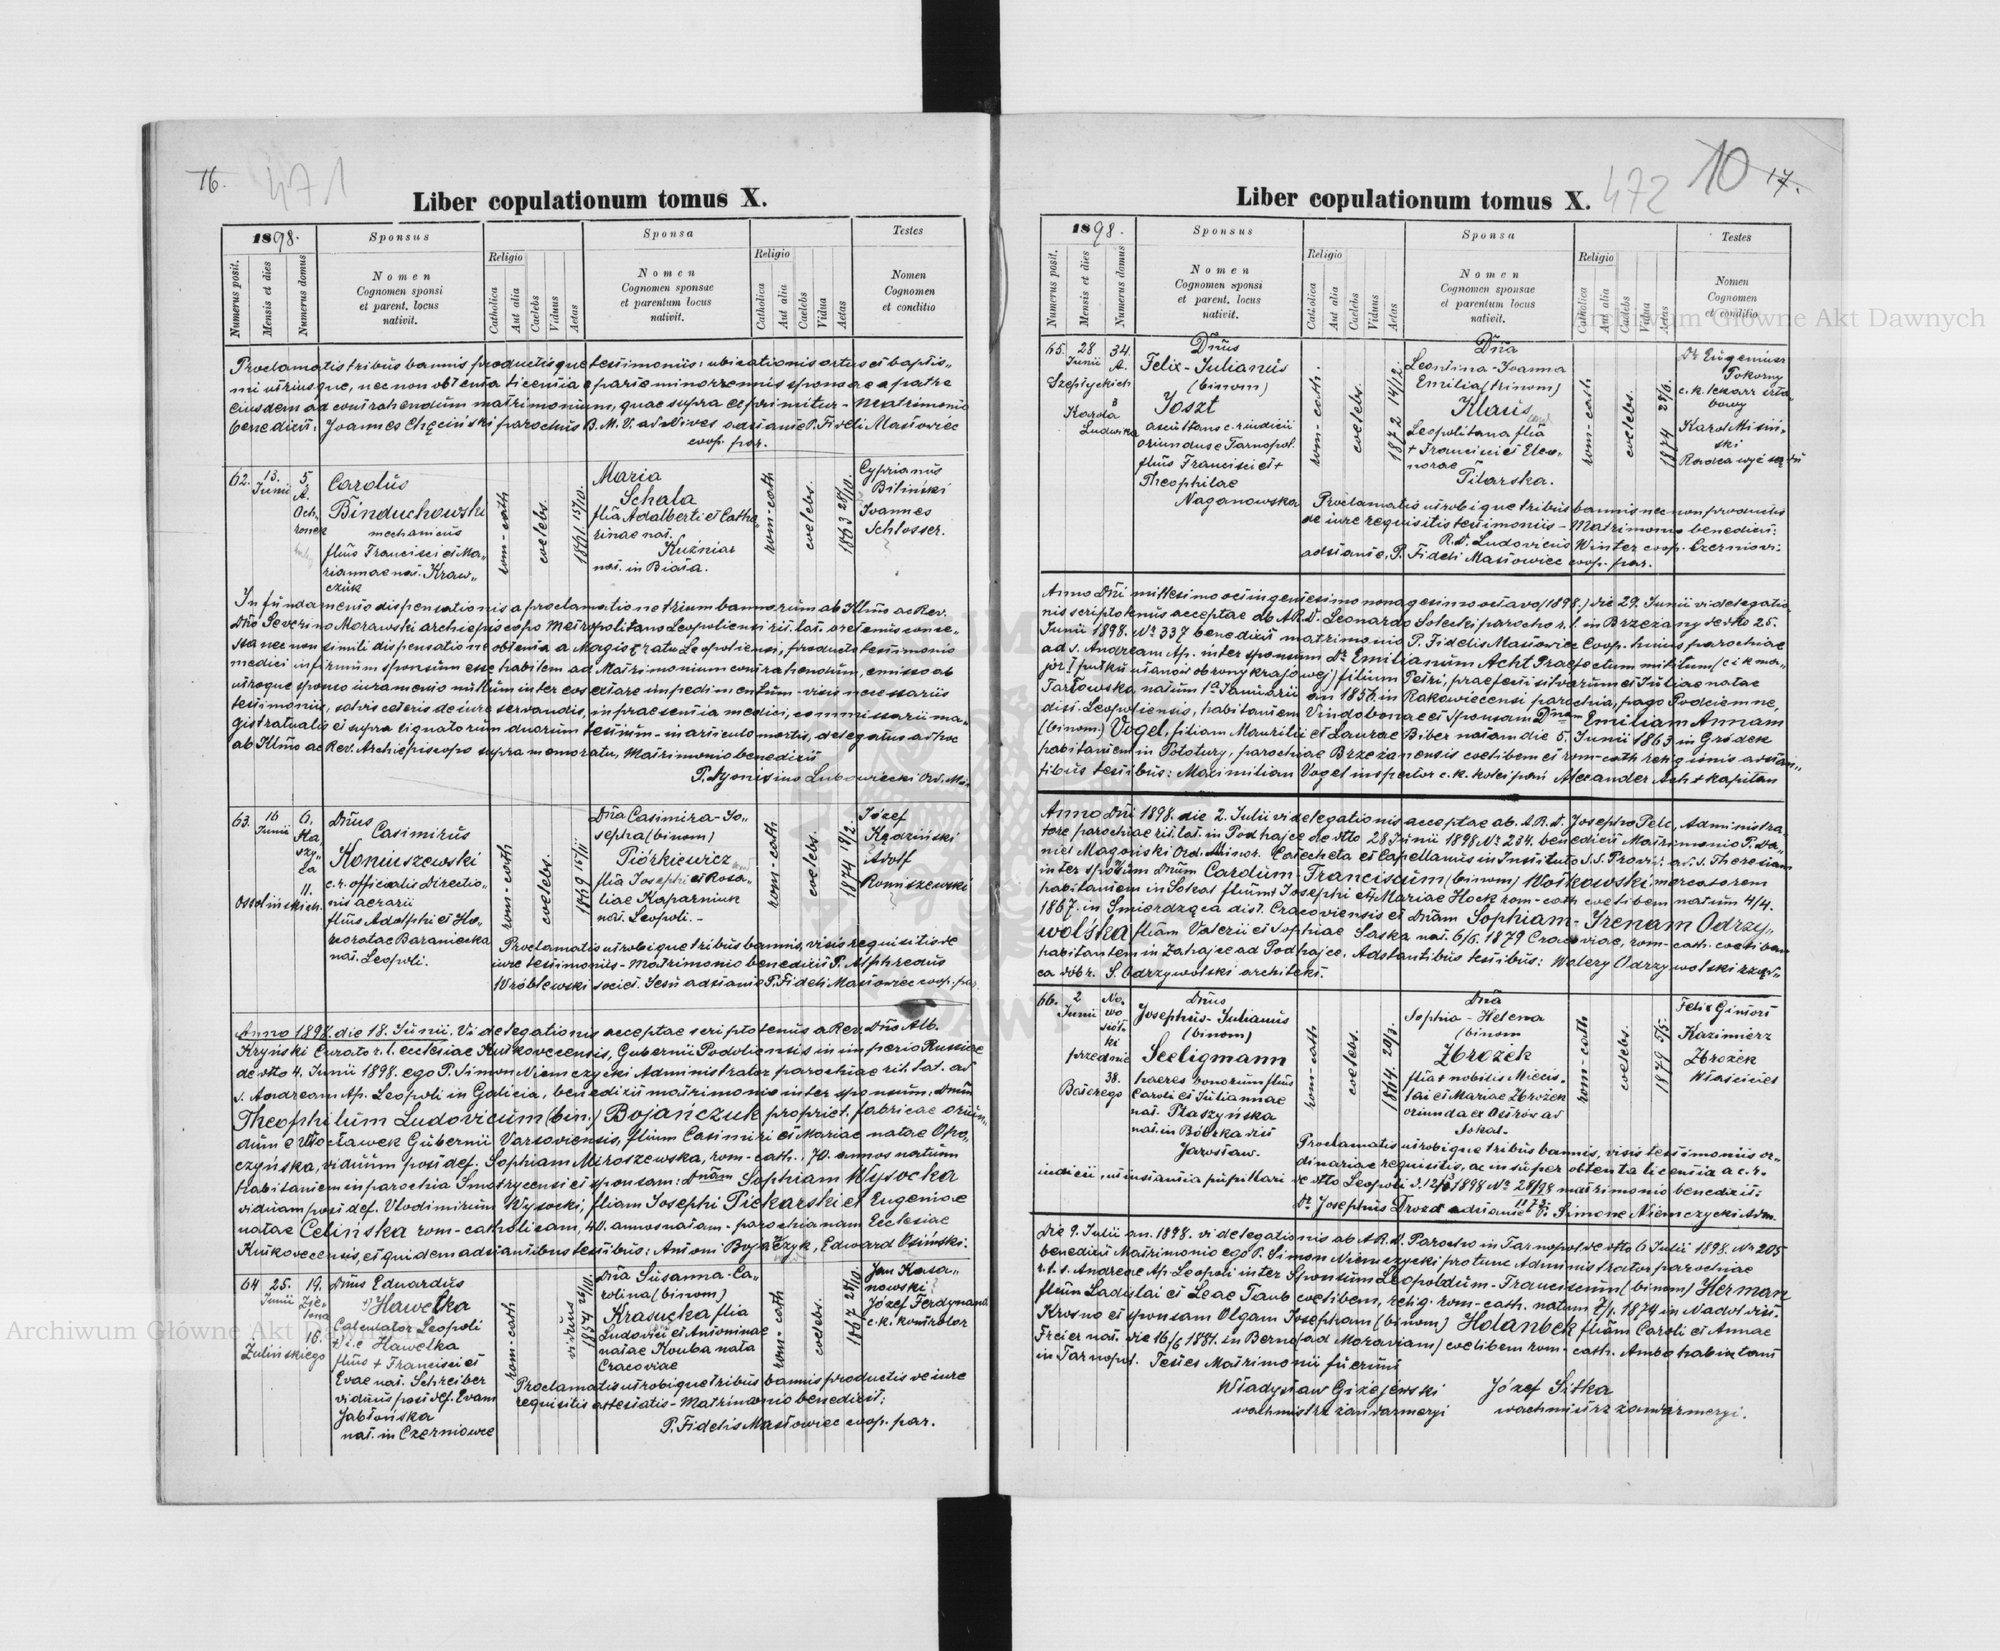 16.
471
Liber copulationum tomus X.
1898.
Sponsus
Sponsa
Testes
Numerus posit.
Mensis et dies
Numerus domus
Nomen
Cognomen sponsi
et parent. locus
nativit.
Religio
Catholica
Aut alia
Caelebs
Viduus
Aetas
Nomen
Cognomen sponsae
et parentum locus
nativit.
Religio
Catholica
Aut alia
Caelebs
Vidua
Aetas
Nomen
Cognomen
et conditio
Proclamatis tribus bannis productisque testimoniis: ubicationis ortus et baptis„
mi utriusque, nec non obtenta licentia e parte minorrennis sponsae a patre
eiusdem ad contrahendum matrimonium, quae supra exprimitur - Matrimonio
benedixit: Joannes Chęciński parochus B. M. V. ad Nives adstante P. Fideli Masłowiec
coop. par.
62. 13. Junii
5. A. Ochronek
Carolus
Binduchowski
mechanicus
filius Francisci et Ma„
riannae nat. Kraw„
czuk
rom-cath
coelebs.
1861 15/10.
Maria
Schala
filia Adalberti et Catha„
rinae nat.
Kuźniar
nat. in Biała.
rom-cath
coelebs.
1863 28/10.
Cyprianus
Biliński
Joannes
Schlosser.
In fundamento dispensationis a proclamatione trium bannorum ab Illmo ac Rev.
Dno Severino Morawski archiepiscopo Metropolitano Leopoliensi rit. lat. oretenus conce„
ssa nec non simili dispensatione obtenta a Magistratu Leopoliensi, producto testimonio
medici infirmum sponsum esse habilem ad Matrimonium contrahendum, emisso ab
utroque sponso iuramento nullum inter eos extare impedimentum - visis necessariis
testimoniis, salvis ceteris de iure servandis, in praesentia medici, commissarii ma„
gistratualis et supra signatorum duorum testium - in articulo mortis, delegatus ad hoc
ab Illmo ac Rev. Archiepiscopo supra memorato, Matrimonio benedixit
P. Dyonisius Lubowiecki Ord. Min.
63. 16 Junii
6.
11.
Ossolińskich.
Dnus
Casimirus
Koniuszewski
c.r. officialis Directio„
nis aerarii
filius Adolphi et Ho„
noratae Baraniecka
nat. Leopoli.
rom-cath
coelebs.
1869 15/11
Dna Casimira-Jo„
sepha (binom)
Piórkiewicz
filia Josephi et Rosa„
liae Kaparniuk
nat. Leopoli.-
rom-cath
coelebs.
1874 19/2.
Józef
Kędziński
Adolf
Koniszewski
Proclamatis utrobique tribus bannis, visis requisitis de
iure testimoniis - Matrimonio benedixit P. Alphredus
Wróblewski societ. Jesu adstante P. Fideli Masłowiec coop. par.
Anno 1898. die 18. Junii. Vi delegationis acceptae scripto tenus a Rev. Dno Alb.
Kryński Curato r. l. ecclesiae Kutkovecensis, Gubernii Podoliensis in imperio Russiae
de dtto 4. Junii 1898. ego P. Simon Niemczycki Administrator parochiae rit. lat. ad
s. Andream Ap. Leopoli in Galicia, benedixi matrimonio inter sponsum: Dnum
Theophilum Ludovicum (bin.) Bojańczuk propriet. fabricae oriun„
dum e Włocławek Gubernii Varsoviensis, filium Casimiri et Mariae natae Opo„
czyńska, viduum post def. Sophiam Miroszewska, rom-cath., 70. annos natum
habitantem in parochia Smotrycensi et sponsam: Dnam Sophiam Wysocka
viduam post def. Vlodimirum Wysocki, filiam Josephi Piekarski et Eugeniae
natae Celińska rom-catholicam, 40. annos natam - parochianam Ecclesiae
Kutkovecensis, et quidem adstantibus testibus: Antoni Bojańczyk, Edward Osiński.
64 25. Junii
19. Zielona
16.
Żulińskiego
Dnus Eduardus
Hawełka
Calculator Leopoli
Hawelka
filius + Francisci et
Evae nat. Schreiber
viduus post def. Evam
Jabłońska
nat. in Czerniowce
rom-cath
viduus
1854 26/10.
Dna Susanna-Ca„
rolina (binom)
Krasucka filia
Ludovici et Antoninae
natae Kouba nata
Cracoviae
rom-cath
coelebs.
1867 28/10.
Jan Kasa„
nowski
Józef Ferdynand
c.k. kontrolor
Proclamatis utrobique tribus bannis productis de iure
requisitis attestatis - Matrimonio benedixit:
P. Fidelis Masłowiec coop. par.
472
10
17.
Liber copulationum tomus X.
1898.
Sponsus
Sponsa
Testes
Numerus posit.
Mensis et dies
Numerus domus
Nomen
Cognomen sponsi
et parent. locus
nativit.
Religio
Catholica
Aut alia
Caelebs
Viduus
Aetas
Nomen
Cognomen sponsae
et parentum locus
nativit.
Religio
Catholica
Aut alia
Caelebs
Vidua
Aetas
Nomen
Cognomen
et conditio
65. 28 Junii
34. A.
Szeptyckich
3
Karola
Ludwika
Dnus
Felix-Julianus
(binom)
Joszt
ascultans c.r. iudicii
oriundus e Tarnopol
filius Francisci et +
Theophilae
Naganowska
rom-cath.
coelebs.
1872 14/12.
Dna
Leontina-Joanna
Emilia (trinom)
Klaus
Leopolitana filia
+ Francisci et Eleo„
norae
Pilarska.
rom-cath
coelebs.
1874 28/6.
Dr Eugeniusz
Pokorny
c.k. lekarz szta„
bowy
Karol Misiń„
ski
Radca wyż. sądu
Proclamatis utrobique tribus bannis nec non productis
de iure requisitis testimoniis - Matrimonio benedixit:
R.D. Ludovicus Winter coop. Czerniovi.
adstante, P. Fideli Masłowiec coop. par.
Anno Dni millesimo octingentesimo nonagesimo octavo (1898.) die 29. Junii vi delegatio„
nis scripto tenus acceptae ab A.R.D. Leonardo Sołecki parocho r. l. in Brzeżany de dtto 25.
Junii 1898. No 337 benedixit matrimonio P. Fidelis Masłowiec Coop. huius parochiae
ad s. Andream Ap. inter sponsum Dr. Emilianum Acht Praefectum militum (c i k ma„
jor I pułku ułanów obrony krajowej) filium Petri, praefecti silvarum et Juliae natae
Tarłowska, natum 1a Januarii an 1856. in Rakowiecensi parochia, pago Podciemne,
dist. Leopoliensis, habitantem Vindobonae et Sponsam Dnam Emiliam Annam
(binom) Vogel, filiam Mauritii et Laurae Biber natam die 5. Junii 1863 in Gródek
habitantem in Potutory, parochiae Brzeżanensis coelibem et rom-cath religionis adstan„
tibus testibus: Maximilian Vogel inspector c.k. kolei pań Alexander Acht kapitan
Anno Dni 1898. die 2. Julii vi delegationis acceptae ab. A.R.D. Josepho Pelc, Administra„
tore parochiae rit. lat. in Podhajce de dtto 28 Junii 1898 No 234. benedixit Matrimonio P. Da„
niel Magoński Ord. Minor. Catecheta et Capellanus in Instituto S.S. Provid. ad s. Theresiam
inter sponsum Dnum Carolum-Franciscum (binom) Wołkowski mercatorem
habitantem in Sokal filium Josephi et Mariae Hock rom-cath coelibem natum 4/4.
1867. in Śmierdząca dist. Cracoviensis et Dnam Sophiam-Irenam Odrzy„
wolska filiam Valerii et Sophiae Saska nat. 6/5. 1879 Cracoviae, rom-cath. coelibem
habitantem in Zahajce ad Podhajce. Adstantibus testibus: Walery Odrzywolski rządz„
ca dóbr. S. Odrzywolski architekt.
66. 2 Junii
No„
wo
siół„
ki
przednie
38.
Batorego
Dnus
Josephus-Julianus
(binom)
Seeligmann
haeres bonorum filius
Caroli et Juliannae
nat. Ptaszyńska
nat. in Bóbrka dist
Jarosław.
rom-cath
coelebs.
1864. 20/3.
Dna
Sophia-Helena
(binom
Zbrożek
filia + nobilis Miecis„
lai et Mariae Zbrożek
oriunda ex Ostrów ad
Sokal-
rom-cath
coelebs.
1879 5/5.
Felix Gintowt
Kazimierz
Zbrożek
Właściciel
Proclamatis utrobique tribus bannis, visis testimoniis or„
dinariae requisitis, ac insuper obtenta licentia a c.r.
iudicii, ut instantia pupillari de dtto Leopoli d. 12/5 1898 No 28/98 matrimonio benedixit:
Dr. Josephus Drozd adstante P. Simone Niemczycki Adm.
Die 9. Julii an. 1898. vi delegationis ab A.R.D. Parocho in Tarnopol de dtto 6 Julii 1898. No 205
benedixi Matrimonio ego P. Simon Niemczycki pro tunc Administrator parochiae
r.l. s. Andreae Ap Leopoli inter Sponsum Leopoldum-Franciscum (binom) Herman
filium Ladislai et Leae Taub coelibem, relig. rom-cath. natum 7/1. 1874 in Nadol dist.
Krosno et sponsam Olgam Josepham (binom) Holanbek filiam Caroli et Annae
Freier nat. die 16/6 1881. in Berno (ad Moraviam) coelibem rom-cath. Ambo habitant
in Tarnopol. Testes Matrimonii fuerunt
Władysław Giżejewski Józef Sitka
wachmistrz żandarmerji wachmistrz żandarmerji.
Archiwum Główne Akt Dawnych
Archiwum Główne Akt Dawnych